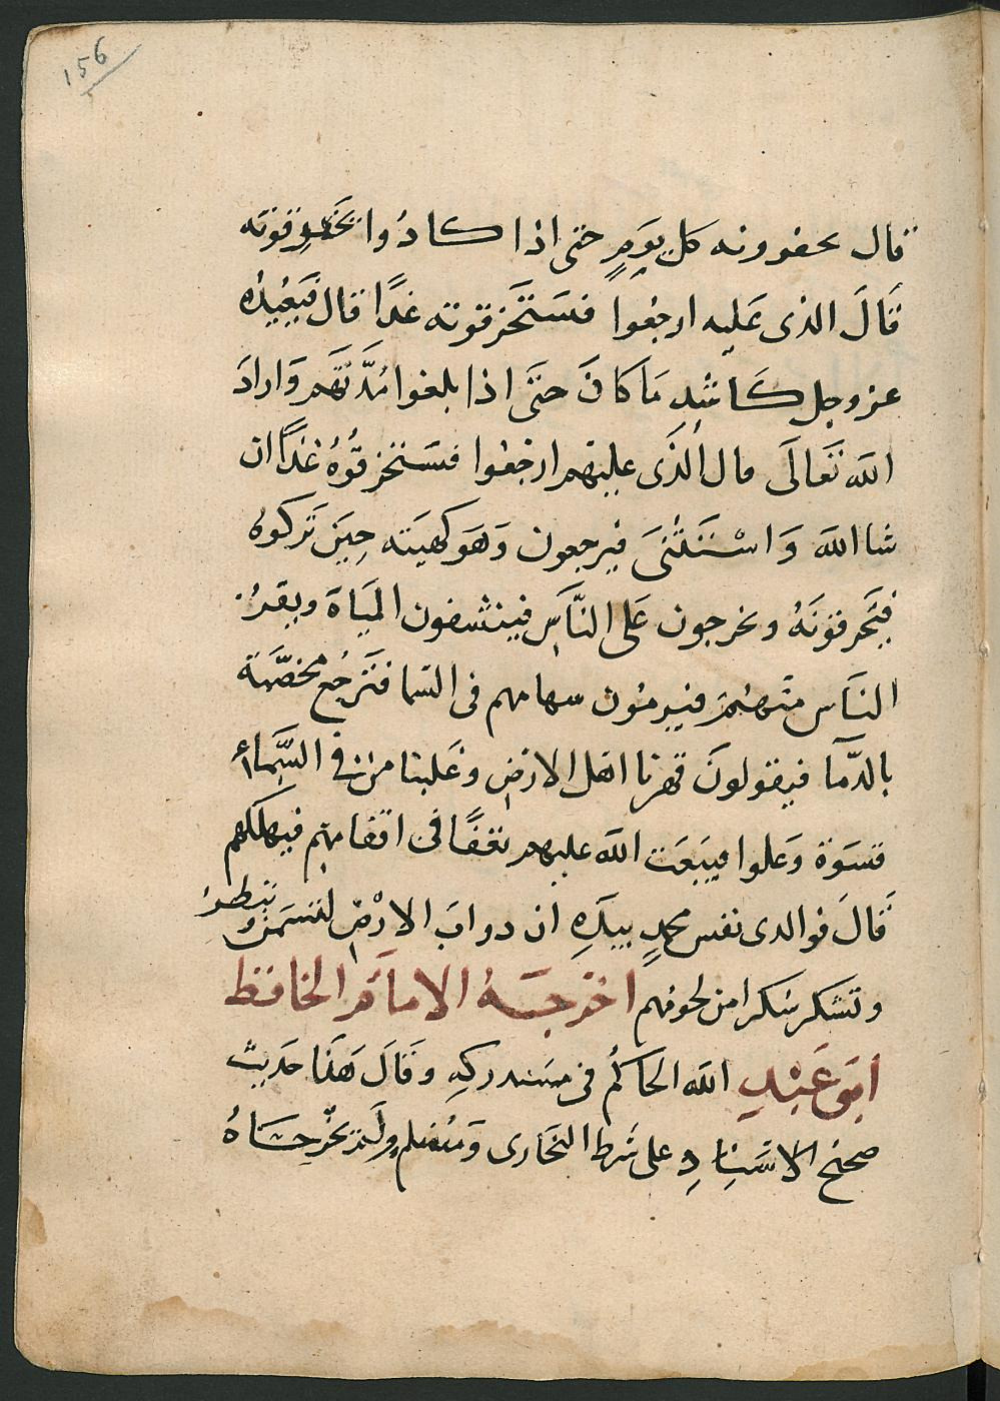 156
قال يحفرونه كل يومٍ حتى اذا كادُوا يخرِقونه
قَالَ الذى عَليه ارجعُوا فسَتَخرقونه غدًا قال فيُعِيدُه
عز وجل كَاشدِ مَا كانَ حتىَّ اذا بلغوا مدَّتَهَم وَارادَ
الله تَعَالَى قال الذَى عليهم ارجعُوا فسَتخرقُوهُ غدًا ان
شا الله وَاسْتَثنىَ فيرجعون وَهَو كهيَته حِيَن تَركوه
فيَخرقونَهُ ويخرجون عَلى النّاسِ فينشفون الميَاهَ ويفرُ
الناَس منهُمْ فيَرمُون سهامهم فى السّما فتَرجُع مخضّبَة
بالدّمآ فيقولونَ قهرنا اهَل الارضِ وغَلبنا من فى السَّمَاءِ
قسَوَة وَعلوا فيبَعَث الله عليهم نغفًا فى اقفائهم فيهلكهم
قَالَ فوالدى نفس محمدٍ بيدِه ان دوابَ الارْضِ لتسمَنُ وتبطرُ
وتشكر شكرا من لحومهم اخرجَهُ الامامُ الحافظ
ابَو عَبْدِ الله الحاكمُ فى مستدركهِ وقَالَ هَذَا حَديث
صحيح الاسَنادِ على شرط البخارى وَمُسْلم ولَم يخرّجَاهُ